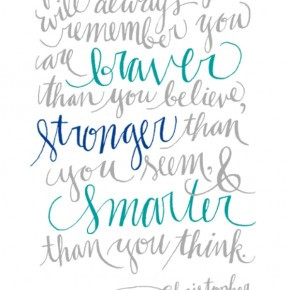 will always
remember you
are braver
than you believe,
stronger than
you seem, &
smarter
than you think.
Christopher